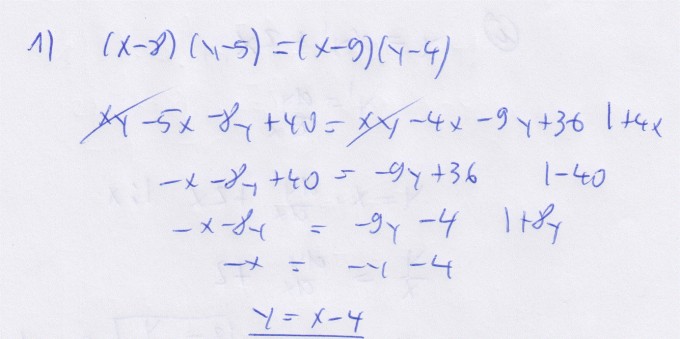 1) (x-8)(y-5)=(x-9)(y-4)
xy -5x -8y +40 = xy -4x -9y +36 |+4x
-x -8y +40 = -9y +36 |-40
-x -8y = -9y -4 |+8y
-x = -y -4
y = x-4